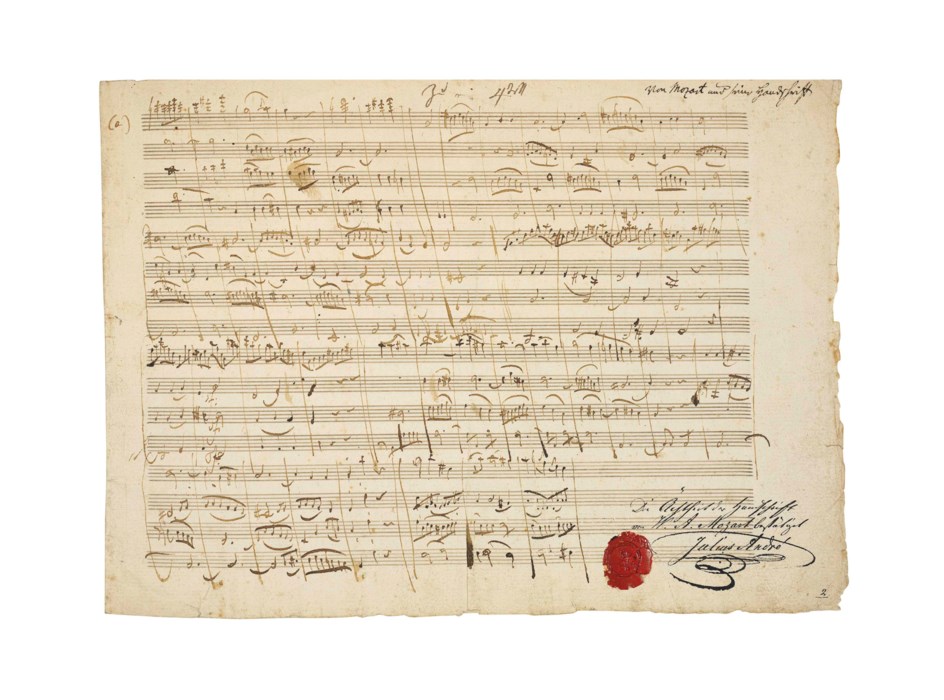 Von Mozart und seine Handschrift
(a)
Die Ächtheit der Handschrift
von W. A. Mozart bestätigt
Julius André
2